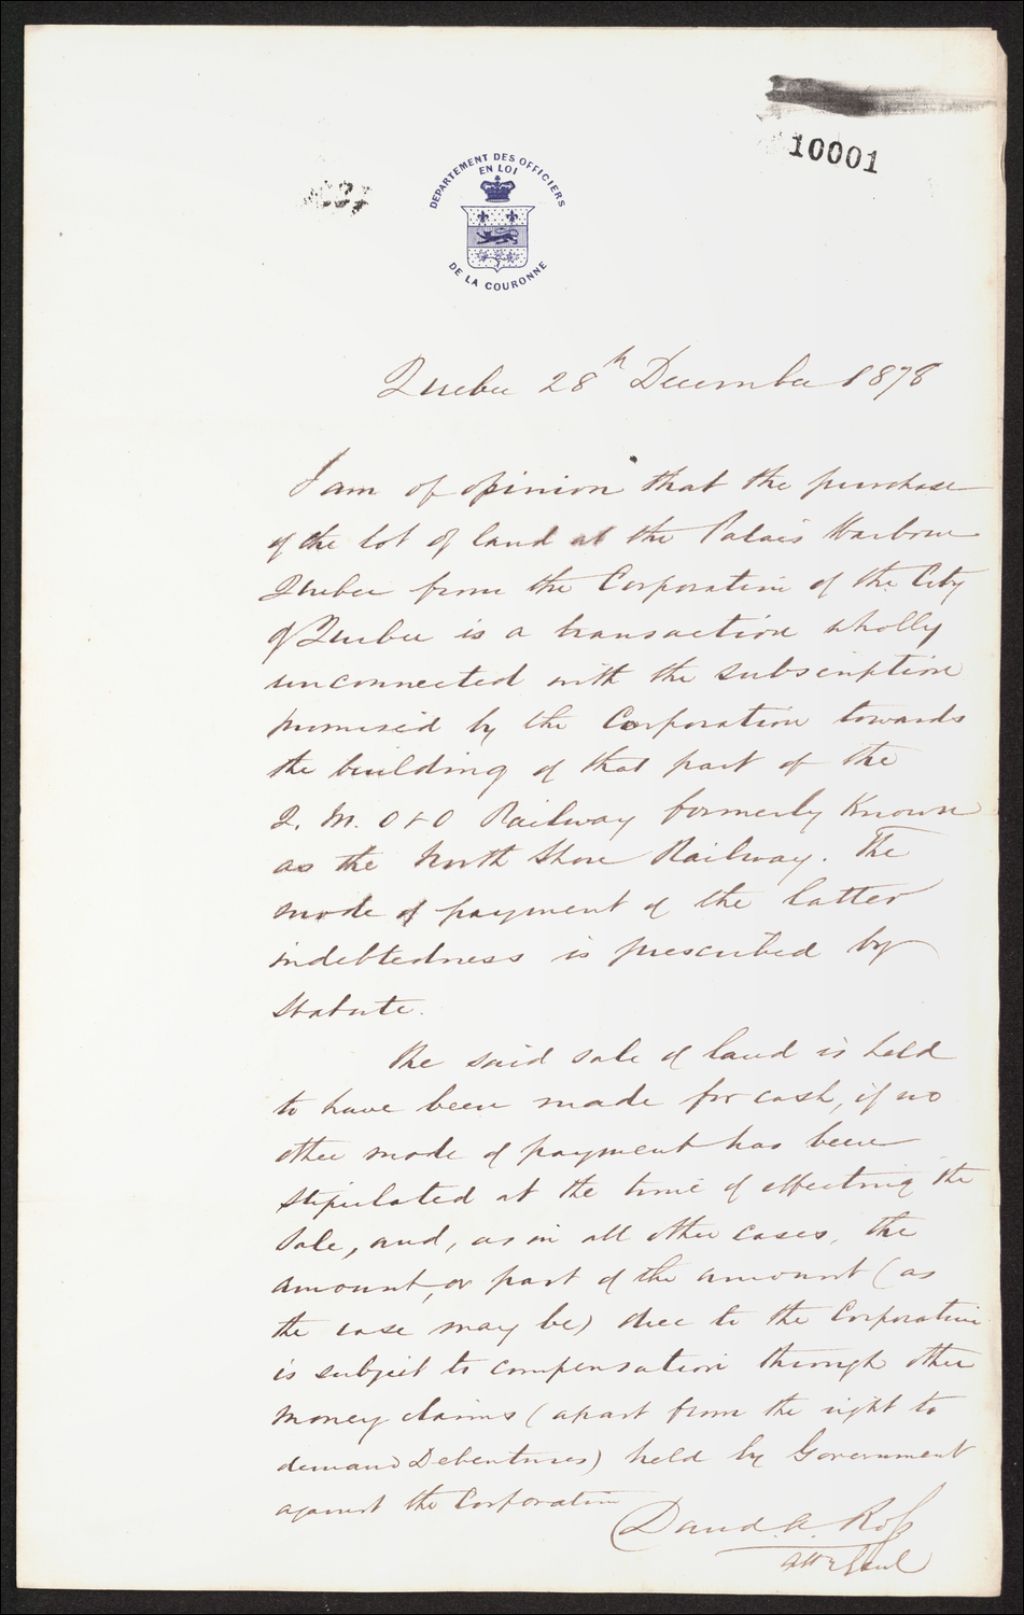 10001
DEPARTEMENT DES OFFICIERS
EN LOI
DE LA COURONNE
Quebec 28th December 1878
I am of opinion that the purchase
of the lot of land at the Palais Harbour
Quebec from the Corporation of the City
of Quebec is a transaction wholly
unconnected with the subscription
promised by the Corporation towards
the building of that part of the
Q. M. O & O Railway formerly Known
as the North Shore Railway. The
mode of payment of the latter
indebtedness is prescribed by
Statute.
The said sale of land is held
to have been made for cash, if no
other mode of payment has been
stipulated at the time of effecting the
Sale, and, as in all other cases, the
amount, or part of the amount (as
the case may be) due to the Corporation
is subject to compensation through other
money claims (apart from the right to
demand Debentures) held by Government
against the Corporation
David. A. Ross
Atty Genl